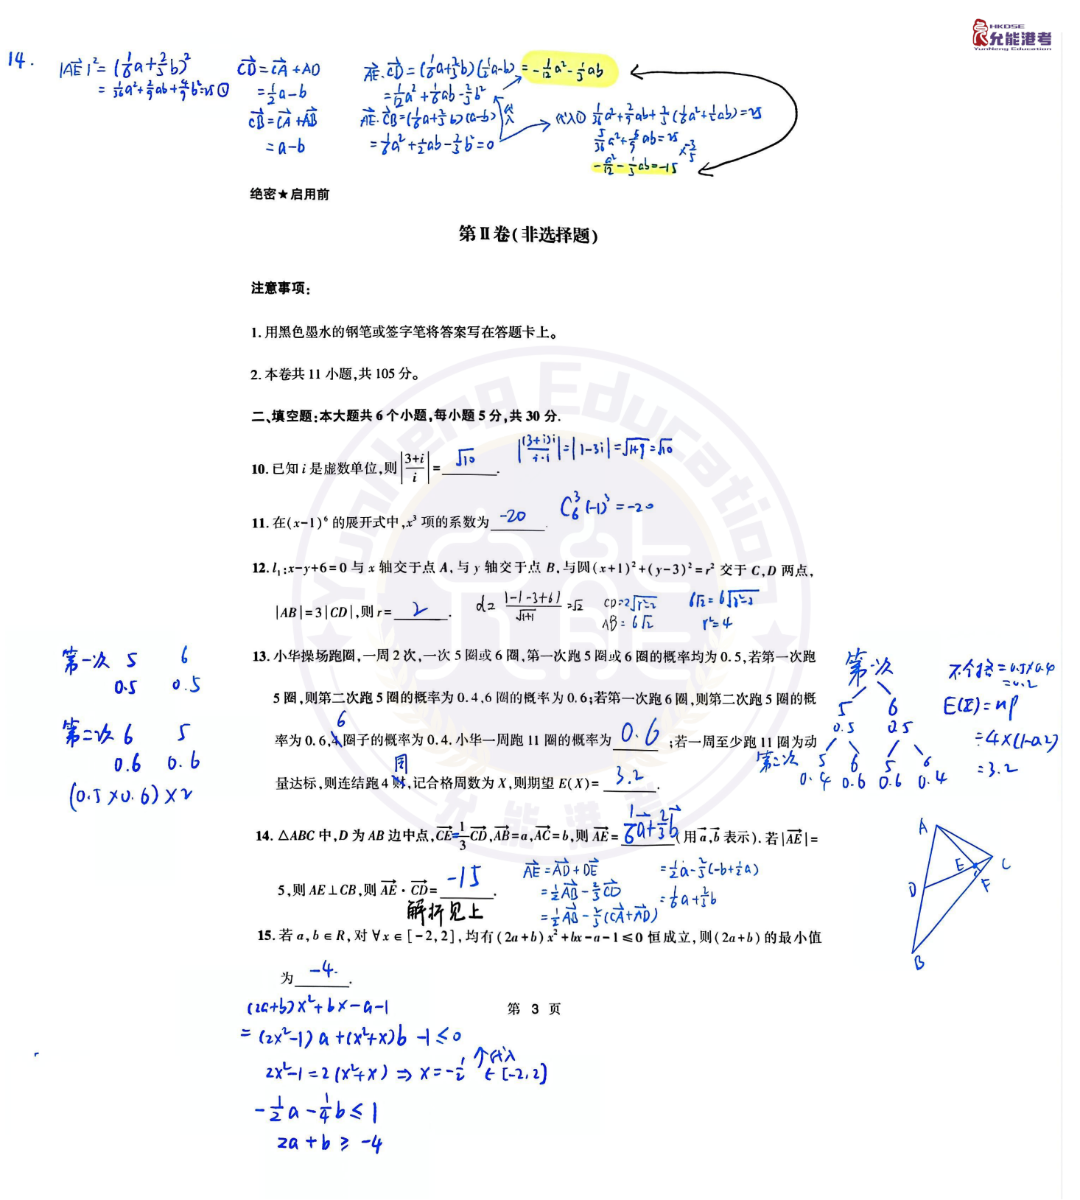 HKDSE
允能港考
YunNeng Education
14.
|AE|²=(1/6a+2/3b)²
=1/36a²+2/9ab+4/9b²=25①
CD=CA+AD
=1/2a-b
CB=CA+AB
=a-b
AE·CD=(1/6a+2/3b)(1/2a-b)=-1/12a²-1/3ab
AE·CB=(1/6a+2/3b)(a-b)
=1/6a²+1/2ab-2/3b²=0
代入
代入① 1/36a²+2/9ab+2/3(1/6a²+1/2ab)=25
5/36a²+5/9ab=25
×-3/5
-a²/12-1/3ab=-15
绝密★启用前
第Ⅱ卷(非选择题)
注意事项:
1.用黑色墨水的钢笔或签字笔将答案写在答题卡上。
2.本卷共11小题,共105分。
二、填空题:本大题共6个小题,每小题5分,共30分.
10.已知i是虚数单位,则|3+i/i|=√10.
|(3+i)i/i·i|=|1-3i|=√1+9=√10
11.在(x-1)⁶的展开式中,x³项的系数为-20.
C₆³(-1)³=-20
12.l₁:x-y+6=0与x轴交于点A,与y轴交于点B,与圆(x+1)²+(y-3)²=r²交于C,D两点,
|AB|=3|CD|,则r=2.
d=|-1-3+6|/√1+1=√2
CD=2√r²-2
AB=6√2
6√2=6√r²-2
r²=4
13.小华操场跑圈,一周2次,一次5圈或6圈,第一次跑5圈或6圈的概率均为0.5,若第一次跑
5圈,则第二次跑5圈的概率为0.4,6圈的概率为0.6;若第一次跑6圈,则第二次跑5圈的概
率为0.6,6圈子的概率为0.4,小华一周跑11圈的概率为0.6;若一周至少跑11圈为动
量达标,则连结跑4周,记合格周数为X,则期望E(X)=3.2.
第一次 5 6
0.5 0.5
第二次 6 5
0.6 0.6
(0.5×0.6)×2
第一次
5 6
0.5 0.5
第二次 5 6 5 6
0.4 0.6 0.6 0.4
不合格=0.5×0.4
=0.2
E(X)=np
=4×(1-0.2)
=3.2
14.△ABC中,D为AB边中点,CE=1/3CD,AB=a,AC=b,则AE=1/6a+2/3b(用a,b表示).若|AE|=
5,则AE⊥CB,则AE·CD=-15.
解析见上
AE=AD+DE
=1/2AB-2/3CD
=1/2AB-2/3(CA+AD)
=1/2a-2/3(-b+1/2a)
=1/6a+2/3b
A
E
C
D
F
B
15.若a,b∈R,对∀x∈[-2,2],均有(2a+b)x²+bx-a-1≤0恒成立,则(2a+b)的最小值
为-4.
第 3 页
(2a+b)x²+bx-a-1
=(2x²-1)a+(x²+x)b-1≤0
↑代入
2x²-1=2(x²+x)⇒x=-1/2∈[-2,2]
-1/2a-1/4b≤1
2a+b≥-4
YunNeng Education
允能
允能港考